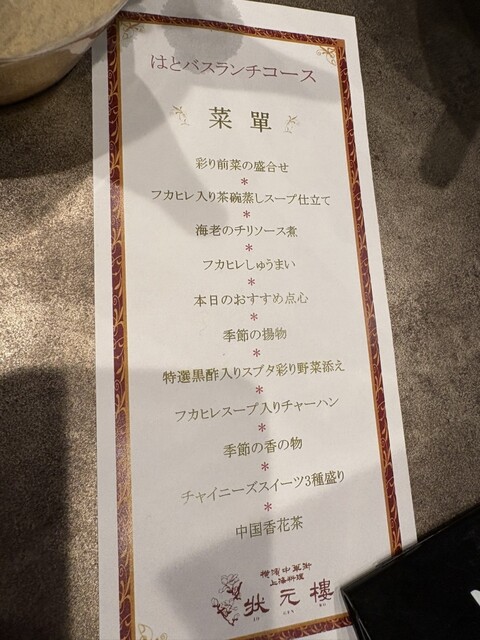 はとバスランチコース
菜單
彩り前菜の盛合せ
*
フカヒレ入り茶碗蒸しスープ仕立て
*
海老のチリソース煮
*
フカヒレしゅうまい
*
本日のおすすめ点心
*
季節の揚物
*
特選黒酢入りスブタ彩り野菜添え
*
フカヒレスープ入りチャーハン
*
季節の香の物
*
チャイニーズスイーツ3種盛り
*
中国香花茶
横濱中華街
上海料理
状元樓